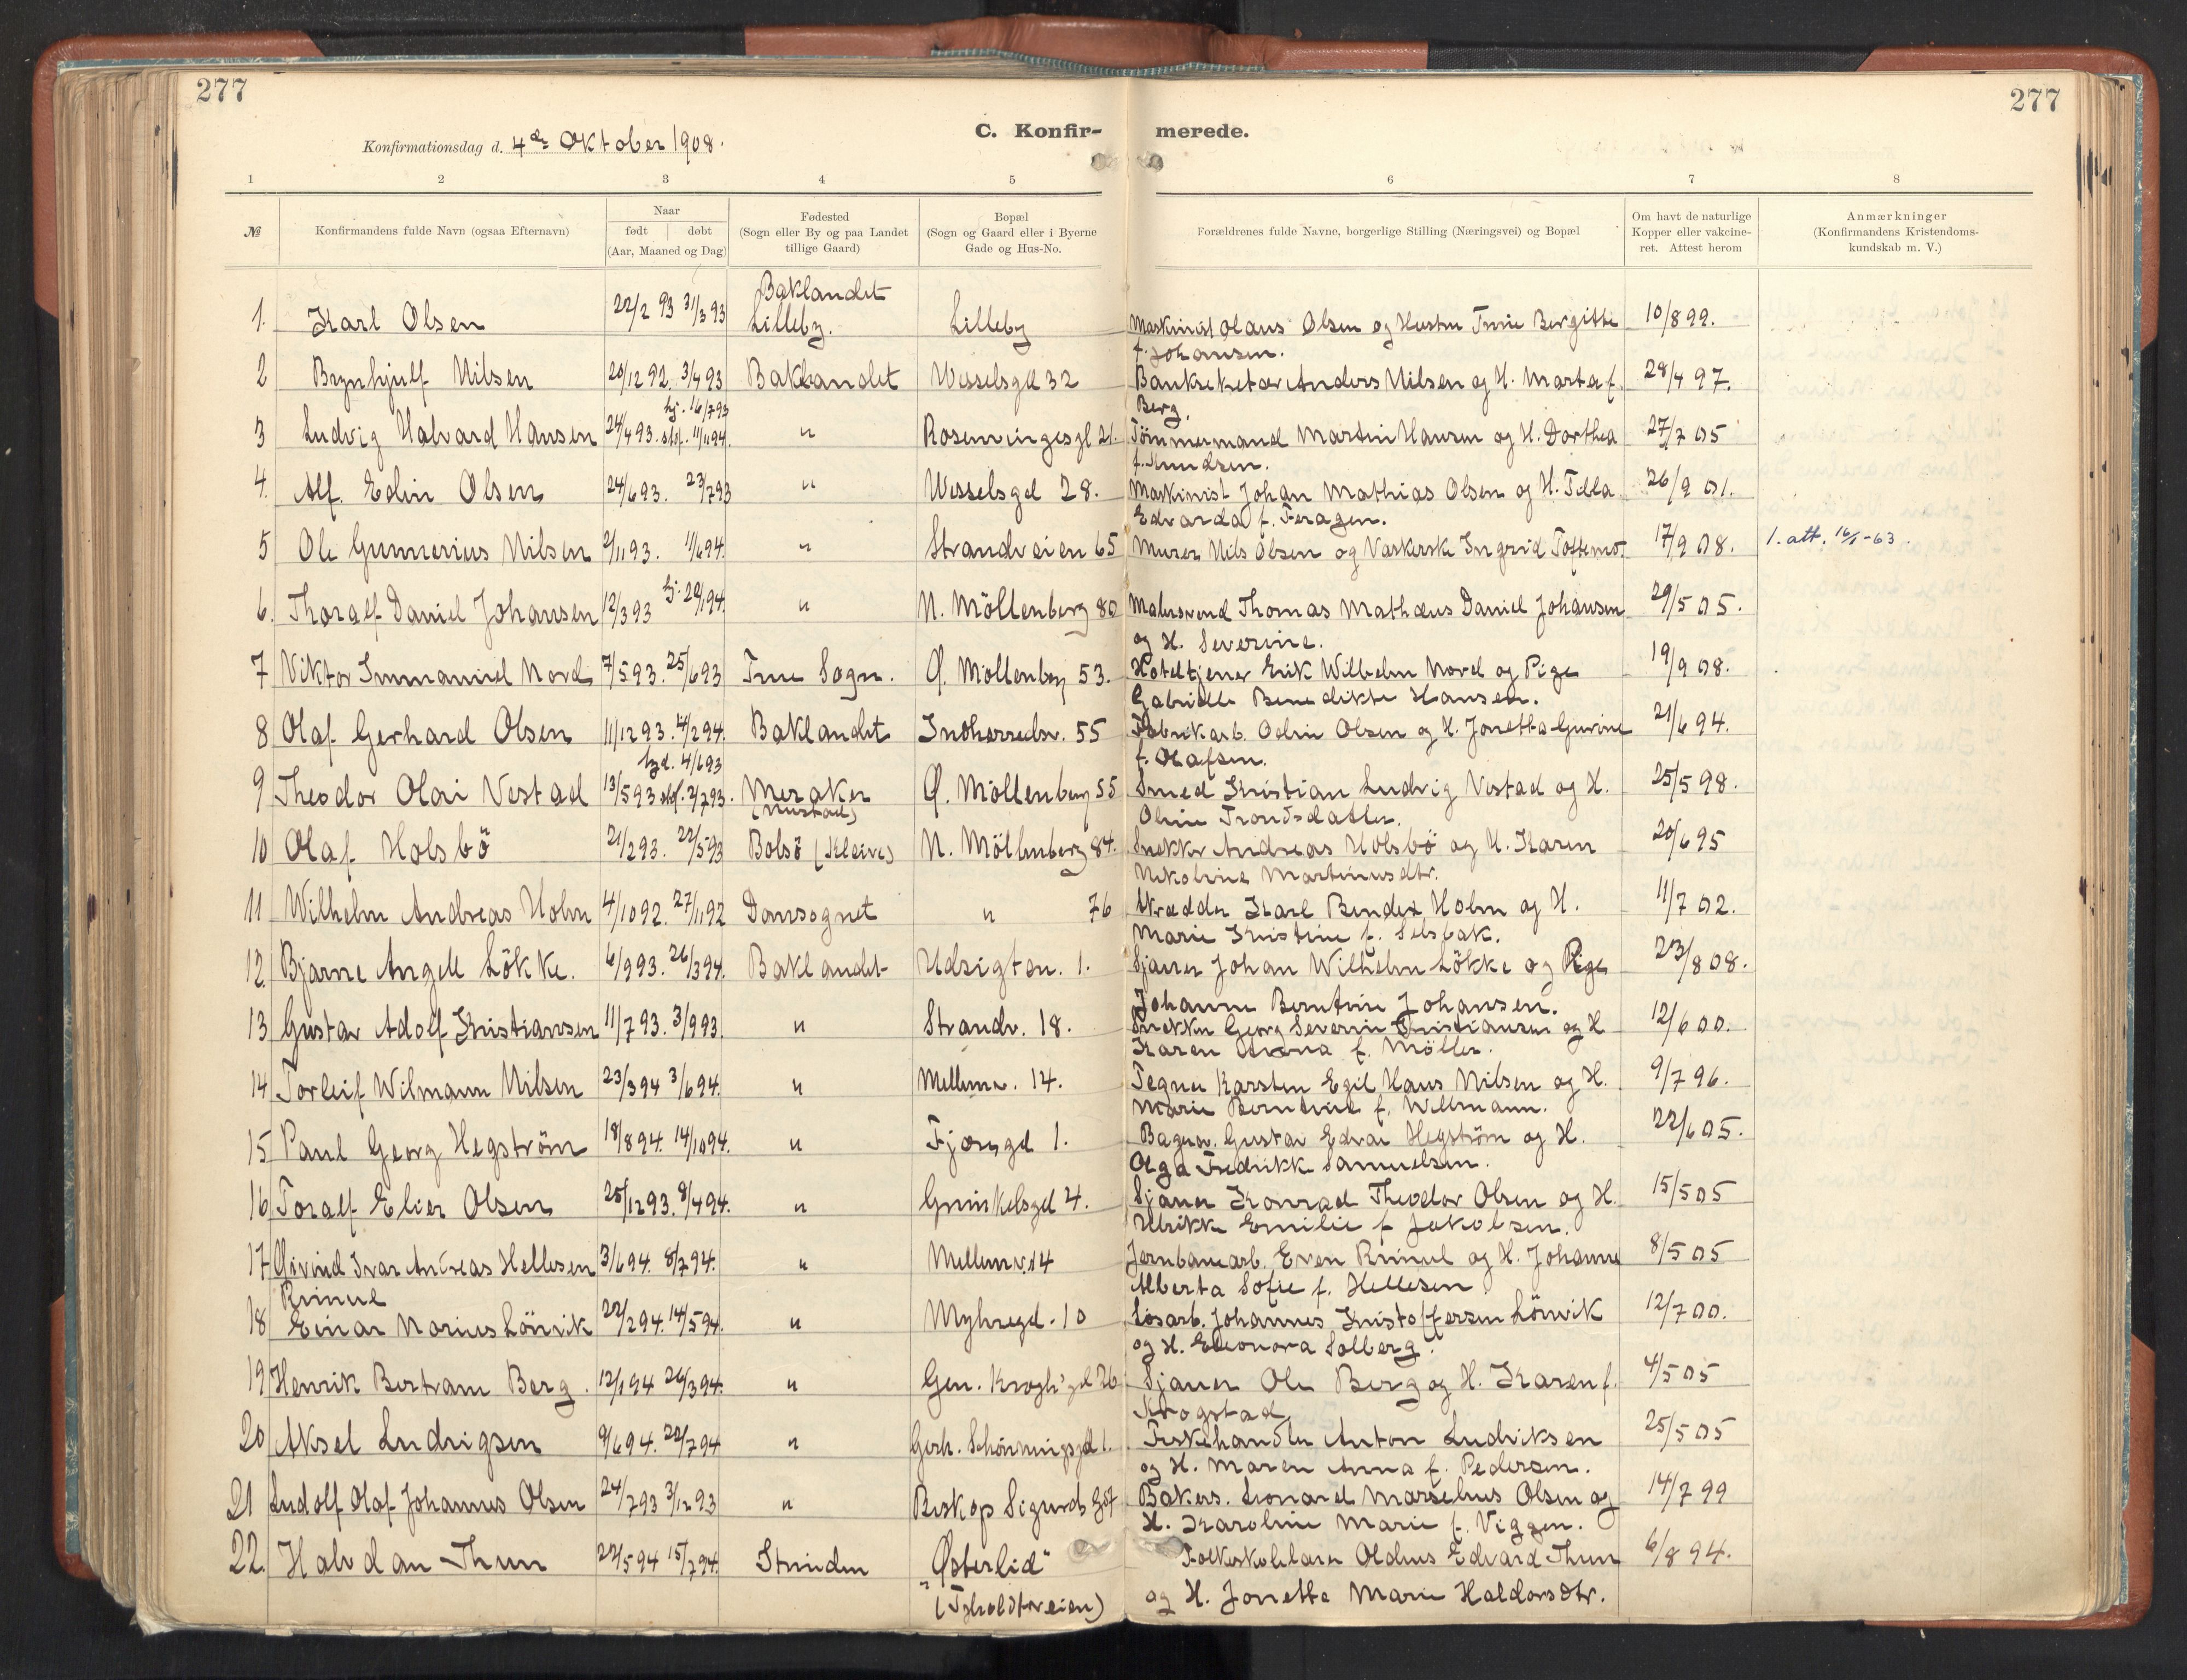 277
277
C. Konfir-
merede.
Konfirmationsdag d. 4de Oktober 1908.
1 2 3 4 5 6 7 8
№
Konfirmandens fulde Navn (ogsaa Efternavn)
Naar
født | døbt
(Aar, Maaned og Dag)
Fødested
(Sogn eller By og paa Landet
tillige Gaard)
Bopæl
(Sogn og Gaard eller i Byerne
Gade og Hus-No.
Forældrenes fulde Navne, borgerlige Stilling (Næringsvei) og Bopæl
Om havt de naturlige
Kopper eller vakcine-
ret. Attest herom
Anmærkninger
(Konfirmandens Kristendoms-
kundskab m. V.)
Baklandet
1. Karl Olsen 22/2 93 31/3 93 Lilleby. Lilleby Maskinist Olaus Olsen og Hustru Trine Bergitte 10/8 99.
f. Johansen.
2 Brynhjulf Nilsen 20/12 92. 3/4 93 Baklandet Wesselsgd 32 Anders Nilsen og H. Marta f. 28/4 97.
hj. 16/7 93 Berg.
3 Ludvig Halvard Hansen 24/4 93. stf. 11/1 94. " Rosenvingesgd 21. Tömmermand Martin Hansen og H. Dorthea 27/7 05
f. Knudsen.
4. Alf. Edin Olsen 24/6 93. 23/7 93 " Wesselsgd 28. Maskinist Johan Mathias Olsen og H. Tella 26/9 01.
Edvarda f. Feragen.
5 Ole Gunnerius Nilsen 2/11 93. 1/6 94. " Strandveien 65 Murer Nils Olsen og Vaskerske Ingrid Toftemo. 17/9 08. 1. att. 16/1-63.
6. Thoralf Daniel Johansen 12/3 93 hj. 20/1 94. " N. Möllenberg 80 Malersvend Thomas Mathæus Daniel Johansen 29/5 05.
og H. Severine.
7 Viktor Immanuel Nord 7/5 93. 25/6 93 Frue Sogn. Ø. Möllenberg 53. Hoteltjener Erik Wilhelm Nord og Pige 19/9 08.
Gabrielle Benedikte Hansen.
8 Olaf Gerhard Olsen 11/12 93. 4/2 94. Baklandet Indherredsv. 55 Fabrikarb. Odin Olsen og H. Jonetta Gurine 21/6 94.
hjd. 4/6 93 f. Olafsen.
9 Theodor Olai Vestad 13/5 93 stf. 2/7 93. Meraker Ø. Möllenberg 55 Smed Kristian Ludvig Vestad og H. 25/5 98.
Oline Trondsdatter.
10 Olaf Holsbö 21/2 93. 22/5 93 Bolsö (Kleive) N. Möllenberg 84. Snekker Andreas Holsbö og H. Karen 20/6 95
Nikoline Martinusdtr.
11 Wilhelm Andreas Holm 4/10 92. 27/11 92 Domsognet " 76 Skrædder Karl Bendix Holm og H. 11/7 02.
Marie Kristine f. Selsbak.
12. Bjarne Angell Lökke. 6/9 93. 26/3 94. Baklandet Udsigten. 1. Sjauer Johan Wilhelm Lökke og Pige 23/8 08.
Johanne Berntine Johansen.
13 Gustav Adolf Kristiansen 11/7 93. 3/9 93. " Strandv. 18. Snekker Georg Severin Kristiansen og H 12/6 00.
Karen f. Möller.
14 Torleif Wilmann Nilsen 23/3 94 3/6 94. " Mellemv. 14. Tegner Karsten Egil Hans Nilsen og H. 9/7 96.
Marie Berntine f. Willmann.
15 Paul Georg Hegström 18/8 94. 14/10 94. " Fjæregd 1. Gustav Edvar Hegström og H. 22/6 05.
Olga Fredrikke Samuelsen.
16 Toralf Elier Olsen 25/12 93. 8/4 94. " Grinikelsgd 4. Sjauer Konrad Theodor Olsen og H. 15/5 05
Ulrikke Emilie f. Jakobsen.
17 Øivind Ivar Andreas Hellesen 3/6 94. 8/7 94. " Mellemv. 14 Jernbanearb. Even Rimul og H. Johanne 8/5 05
Rimul Alberta Sofie f. Hellesen
18 Einar Marius Lönvik 22/2 94. 14/5 94. " Myhregd. 10 Løsarb. Johannes Kristoffersen Lönvik 12/7 00.
og H. Eleonora Solberg.
19 Henrik Bertram Berg. 12/1 94 26/3 94. " Gen. Krogh'gd 26 Sjauer Ole Berg og H. Karen f. 4/5 05
Krogstad
20 Aksel Ludvigsen 9/6 94. 22/7 94 " Gerh. Schönningsgd 1. Fiskehandler Anton Ludviksen 25/5 05
og H. Maren Anna f. Pedersen.
21 Ludolf Olaf Johannes Olsen 24/7 93 3/12 93 " Biskop Sigurds g 7 Bakers. Leonard Marselius Olsen og 14/7 99
H. Karoline Marie f. Viggen.
22. Halvdan Thun 22/5 94 15/7 94. Strinden "Østerlid" Folkeskolelærer Oldus Edvard Thun 6/8 94.
(Tyholdtveien) og H. Jonetta Marie Haldorsdtr.